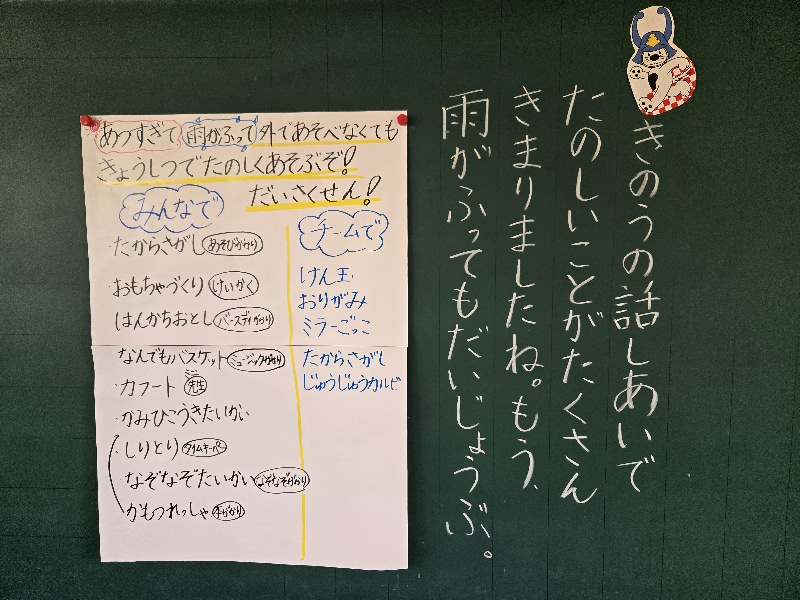 きのうの話しあいで
たのしいことがたくさん
きまりましたね。もう、
雨がふってもだいじょうぶ。
あつすぎて 雨がふって 外であそべなくても
きょうしつでたのしくあそぶぞ!
だいさくせん!
みんなで
・たからさがし あそびがかり
・おもちゃづくり けいかく
・はんかちおとし バースディがかり
・なんでもバスケット ミュージックがかり
・カフート 先生
・かみひこうきたいかい
・しりとり タイムキーパー
・なぞなぞたいかい なぞなぞがかり
・かもつれっしゃ 本がかり
チームで
けん玉
おりがみ
ミラーごっこ
たからさがし
じゅうじゅうカルビ